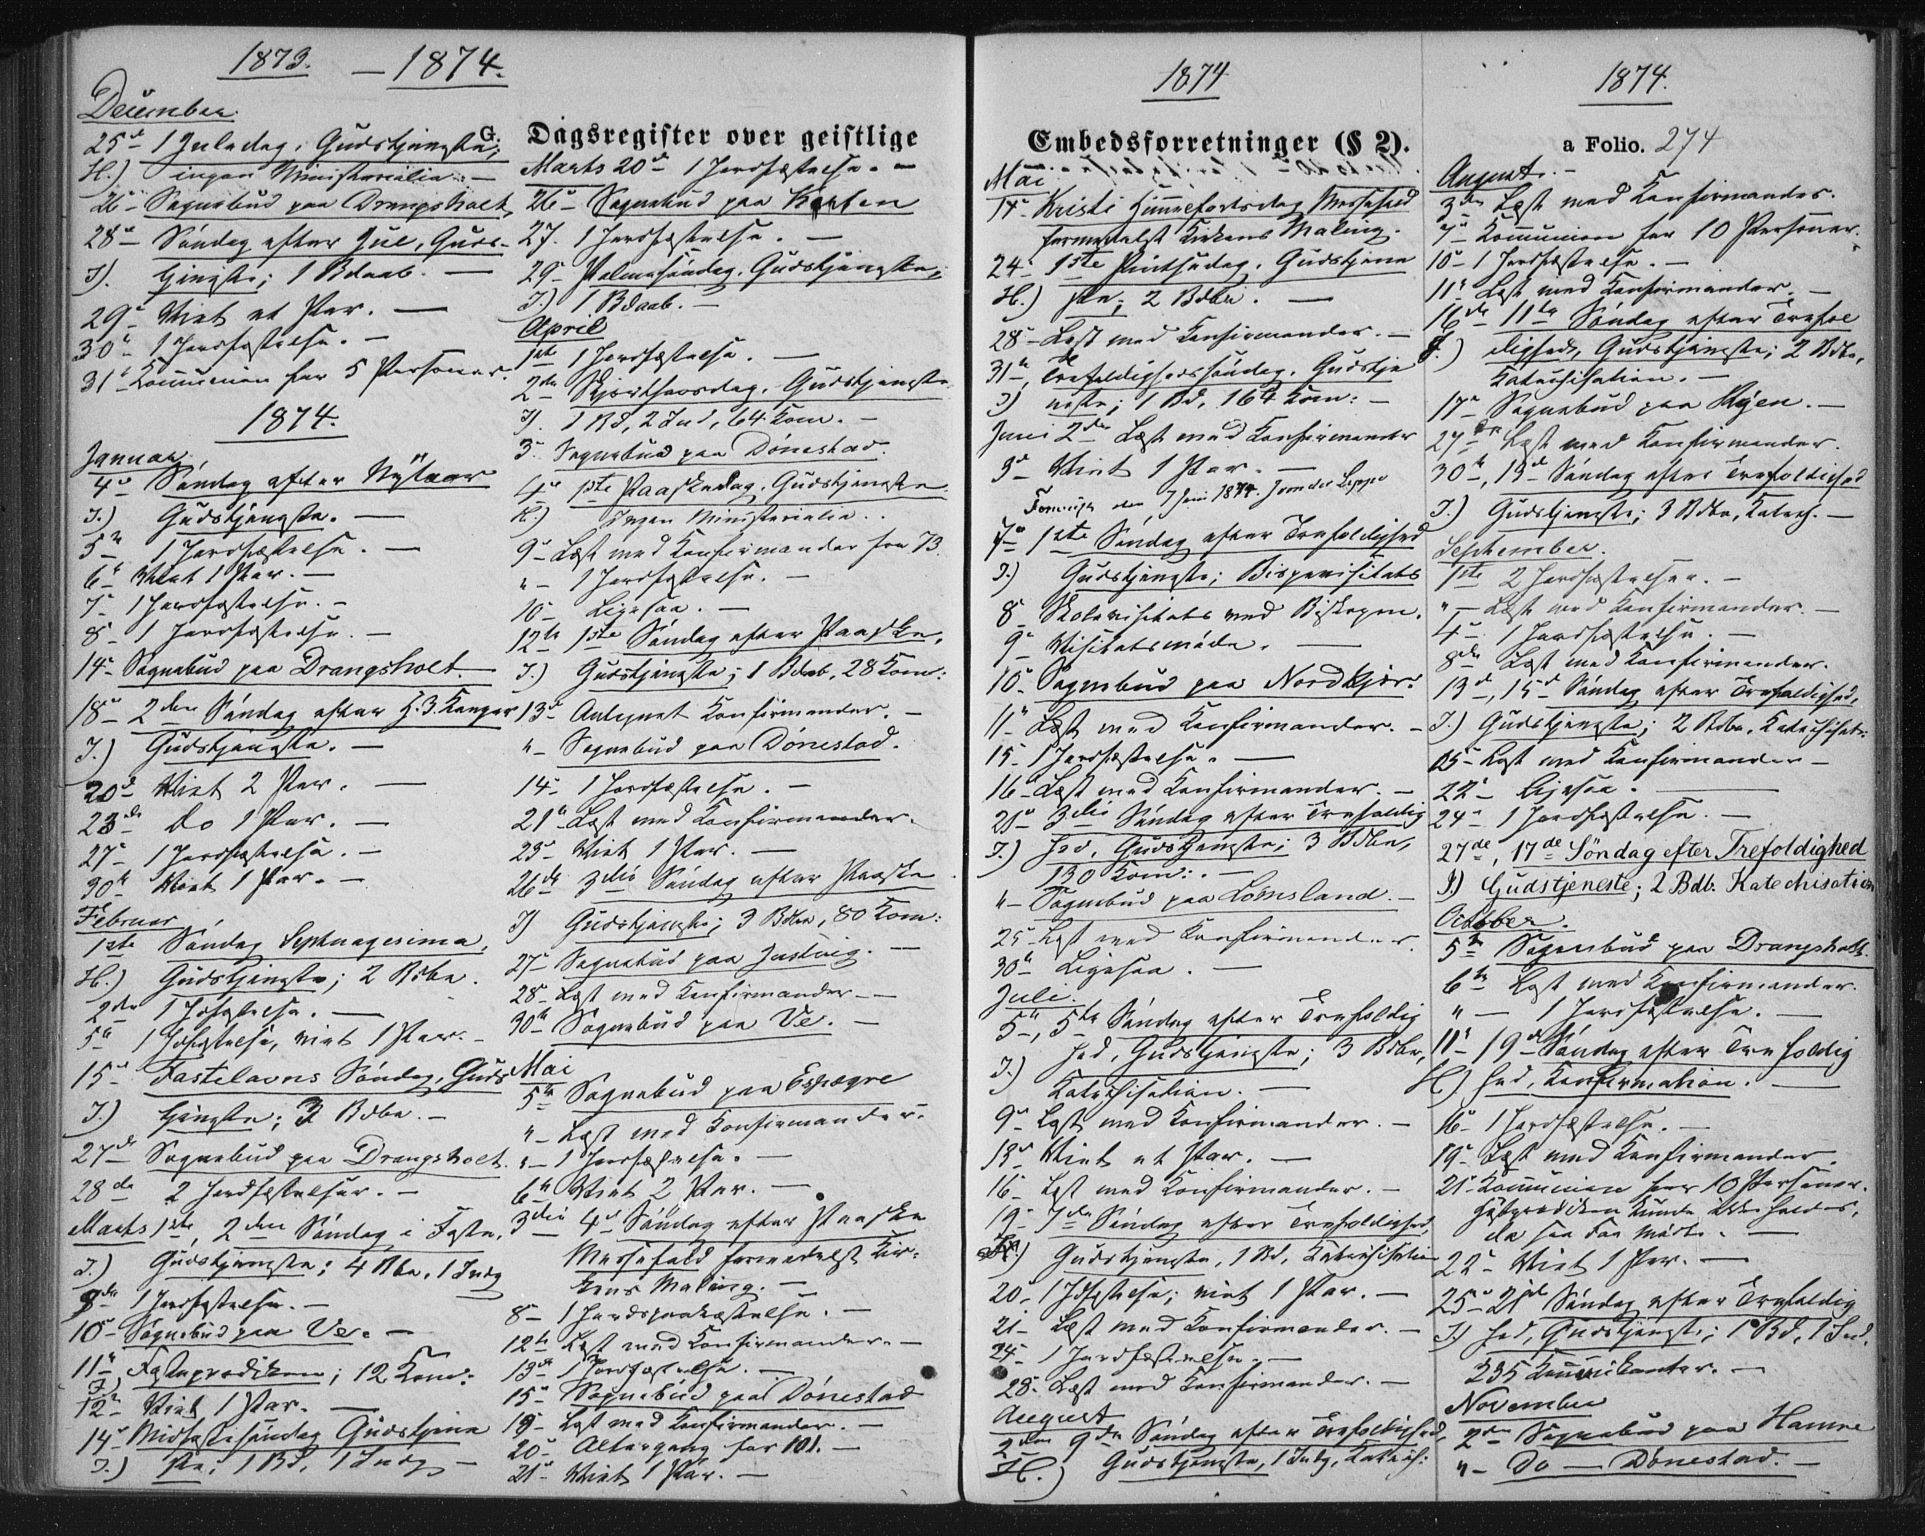 1873. — 1874.
December.
25de 1 Juledag. Gudstjeneste;
H.) ingen Ministerialia. —
26 – Sognebud paa Drangsholt
28de Søndag efter Jul, Guds-
T). tjeneste; 1 Bdaab. —
29de Viet et Par. —
30te 1 Jordfæstelse. —
31te Kommunion for 5 Personer.
1874.
Januar.
4de Søndag efter Nytaar
T.) Gudstjeneste. —
5te 1 Jordfæstelse. —
6te Viet 1 Par. —
7de 1 Jordfæstelse. —
8de 1 Jordfæstelse. —
14de Sognebud paa Drangsholt. —
18de 2den Søndag efter H. 3. Konger
T.) Gudstjeneste. —
20de Viet 2 Par. —
23de Do 1 Par. —
27de 1 Jordfæstelse. —
30te Viet 1 Par. —
Februar
1ste Søndag Septuagesima,
H.) Gudstjeneste; 2 Bdbe.
2den 1 Jdfæstelse. —
5te 1 Jdfæstelse, viet 1 Par. —
15de Fastelavns Søndag, Guds
T.) tjeneste; 3 Bdbe. —
27de Sognebud paa Drangsholt.
28de 2 Jordfæstelser. —
Marts 1ste, 2den Søndag i Faste,
T.) Gudstjeneste; 4 Bbe, 1 Indg
1 Jordfæstelse. —
10de Sognebud paa Ve. —
11te Fasteprædiken; 12 Kom:
12te Viet 1 Par. —
14de Midfastesøndag Gudstjene
T.) ste; 1 Bd, 1 Indg —
G. Dagsregister over geistlige
Marts 20de 1 Jordfæstelse. —
26de Sognebud paa
27. 1 Jordfæstelse. —
29de Palmesøndag. Gudstjeneste;
T) 1 Bdaab. —
April
1ste 1 Jordfæstelse. —
2den Skjærthorsdag. Gudstjeneste
T). 1 Bd, 2 Ind, 64 Kom. —
3. Sognebud paa Dønestad.
1ste Paaskedag. Gudstjeneste.
Ingen Ministerialia.
9de Læst med Konfirmander fra 73.
" – 1 Jordfæstelse. —
10 – Ligesaa. —
12te 1ste Søndag efter Paaske,
T.) Gudstjeneste; 1 Bdab, 28 Kom:
13de Antegnet Konfirmander. —
" – Sognebud paa Dønestad.
14de 1 Jordfæstelse. —
21de Læst med Konfirmander.
23de Viet 1 Par. —
26de 3die Søndag efter Paaske
T) Gudstjeneste; 3 Bdbe, 80 Kom:
27de Sognebud paa Justvig. —
28de Læst med Konfirmander —
30te Sognebud paa Ve. —
Mai
5te Sognebud paa Espegre
" – Læst med Konfirmander.
" – 1 Jordfæstelse. —
6te Viet 2 Par. —
3die 4de Søndag efter Paaske
Messefald formedelst Kir-
kens Maling. —
8de 1 Jordspaakastelse. —
12te Læst med Konfirmander. —
13de 1 Jordfæstelse. —
15de Sognebud paa Dønestad
19de Læst med Konfirmander. —
20de Altergang for 101. —
21de Viet 1 Par. —
1874
Embedsforretninger (§ 2).
Mai
14de Kristi Himmelfartsdag Messefald
formedelst Kirkens Maling.
24de 1ste Pintsedag. Gudstjene
H.) ste; 2 Bdbe. —
28de Læst med Konfirmander. —
31te Trefoldighedssøndag. Gudstje
T) neste; 1 Bd. 164 Kom: —
Juni 2den Læst med Konfirmander
3de Viet 1 Par. —
den 7 Juni 1874.
7de 1ste Søndag efter Trefoldighed
T.) Gudstjeneste; Bispevisitats
8de Skolevisitats med Biskopen.
9de Visitatsmøde. —
10de Sognebud paa Nordkjær.
11te Læst med Konfirmander. —
15de 1 Jordfæstelse. —
16de Læst med Konfirmander. —
21de 3die Søndag efter Trefoldig
T.) hed, Gudstjeneste; 3 Bdbe,
130 Kom: . —
" – Sognebud paa Lømsland. —
25de Læst med Konfirmander.
30te Ligesaa. —
Juli.
5te, 5te Søndag efter Trefoldig
T.) hed, Gudstjeneste; 3 Bdbe,
Katechisation. —
9de Læst med Konfirmander. —
13de Viet et Par. —
16de Læst med Konfirmander. —
19de 7de Søndag efter Trefoldighed,
Gudstjeneste, 1 Bd, Katechisation
20de 1 Jdfæstelse; viet 1 Par. —
21de Læst med Konfirmander. —
24de 1 Jordfæstelse. —
28de Læst med Konfirmander. —
August
2den 9de Søndag efter Trefoldighed,
H.) Gudstjeneste, 1 Indg, Katech:
1874.
a Folio. 274
August. —
3die Læst med Konfirmander.
7de Kommunion for 10 Personer.
10de 1 Jordfæstelse. —
11te Læst med Konfirmander. —
16de 11te Søndag efter Trefol
T.) dighed, Gudstjeneste; 2 Bdbe,
Katechisation. —
17de Sognebud paa Ryen. —
27de Læst med Konfirmander.
30te, 13de Søndag efter Trefoldighed
T.) Gudstjeneste; 3 Bdbe, Katech. —
September.
1ste 2 Jordfæstelser. —
" – Læst med Konfirmander. —
4de 1 Jordfæstelse. —
8de Læst med Konfirmander.
13de, 15de Søndag efter Trefoldighed,
T.) Gudstjeneste; 2 Bdbe, Katechisat:
15de Læst med Konfirmander —
22de Ligesaa. —
24de 1 Jordfæstelse. —
27de, 17de Søndag efter Trefoldighed
T.) Gudstjeneste; 2 Bdb. Katechisation
October.
5te Sognebud paa Drangsholt.
6te Læst med Konfirmander.
" — 1 Jordfæstelse. —
11te 19de Søndag efter Trefoldig
H.) hed, Konfirmation. —
16de 1 Jordfæstelse. —
19de Læst med Konfirmander.
21de Kommunion for 10 Personer.
Høstprædiken kunde ikke holdes,
da saa Faa mødte. —
22de Viet 1 Par. —
25de 21de Søndag efter Trefoldig
T.) hed, Gudstjeneste; 1 Bd, 1 Ind.
235 Kommunikanter. —
November
2den Sognebud paa Hamre
" – Do — Dønestad. —